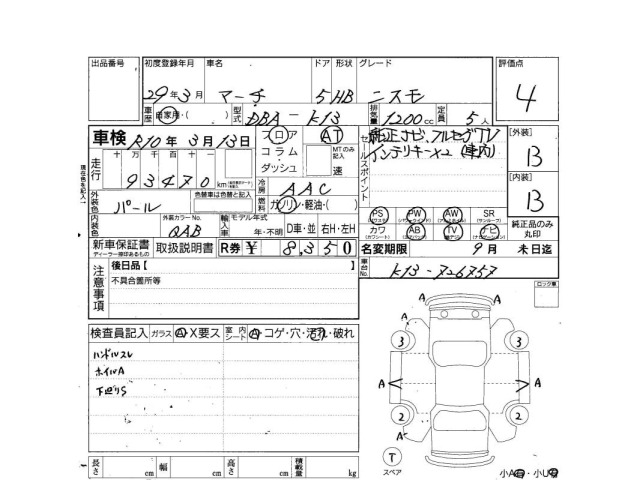 出品番号 初度登録年月 車名 ドア 形状 グレード 評価点
29年3月 マーチ 5 HB ニスモ 4
車歴 自家用・( ) 型式 DBA-K13 排気量 1200cc 定員 5人
車検 R10年3月13日 フロア AT セールスポイント 純正ナビ、フルセグTV [外装]
コラム MTのみ記入 インテリキー×2 (車内) B
走行 十万千百十 93470 km ダッシュ 速
冷房 AAC [内装]
外装色 パール 色替車は色替と記入 燃料 ガソリン・軽油・( ) B
PS PW AW SR
内装色 外装カラーNo. QAB 輸入車 モデル年式 年・不明 D車・並 右H・左H カワ AB TV ナビ 純正品のみ丸印
新車保証書 取扱説明書 R券 ¥ 8,350 名変期限 9月 末日迄
ディーラー捺印あるもの
車台No. K13-726757
注意事項 後日品【 】 ロック車
不具合箇所等
検査員記入 ガラス A X要ス 室内シート A コゲ・穴・汚れ・破れ
ハンドルスレ
ホイルA
下廻りS
A A
3 3
A A
2 2
A A
T
スペア
長さ cm 幅 cm 高さ cm 積載量 kg 小A・小U